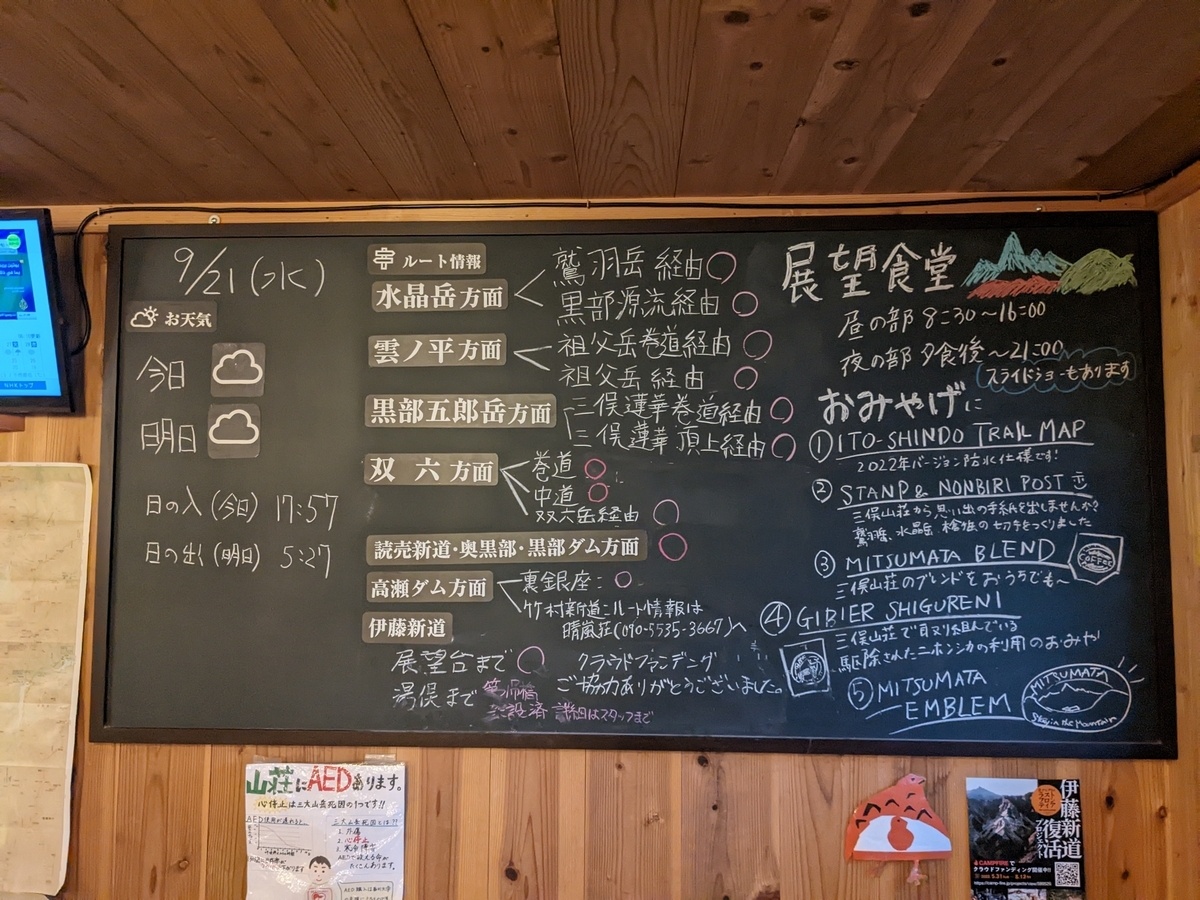 9/21(水)
お天気
今日
明日
日の入(今日) 17:57
日の出(明日) 5:27
ルート情報
水晶岳方面
鷲羽岳 経由○
黒部源流経由○
雲ノ平方面
祖父岳巻道経由○
祖父岳 経由○
黒部五郎岳方面
三俣蓮華巻道経由○
三俣蓮華 頂上経由○
双六方面
巻道○
中道○
双六岳経由○
読売新道・奥黒部・黒部ダム方面○
高瀬ダム方面
裏銀座:○
竹村新道:ルート情報は
晴嵐荘(090-5535-3667)へ
伊藤新道
展望台まで○
湯俣まで
詳細はスタッフまで
クラウドファンデング
ご協力ありがとうございました。
展望食堂
昼の部 8:30~16:00
夜の部 夕食後~21:00
スライドショーもあります
おみやげに
① ITO-SHINDO TRAIL MAP
2022年バージョン防水仕様です!
② STAND & NONBIRI POST
三俣山荘から思い出の手紙を出しませんか?
の切手をつくりました
③ MITSUMATA BLEND
COFFEE
三俣山荘のブレンドをおうちでも~
④ GIBIER SHIGURENI
三俣山荘で取り組んでいる
駆除されたニホンジカの利用のおみや
⑤ MITSUMATA
EMBLEM
MITSUMATA
Stay in the Mountain
山荘にAEDあります。
心停止は三大山岳死因の1つです!!
AED使用が遅れると、
三大山岳死因とは?!
1. 外傷
2. 心停止
たくさんあります。
伊藤新道
復活
プロジェクト
CAMPFIREで
クラウドファンディング開催中!